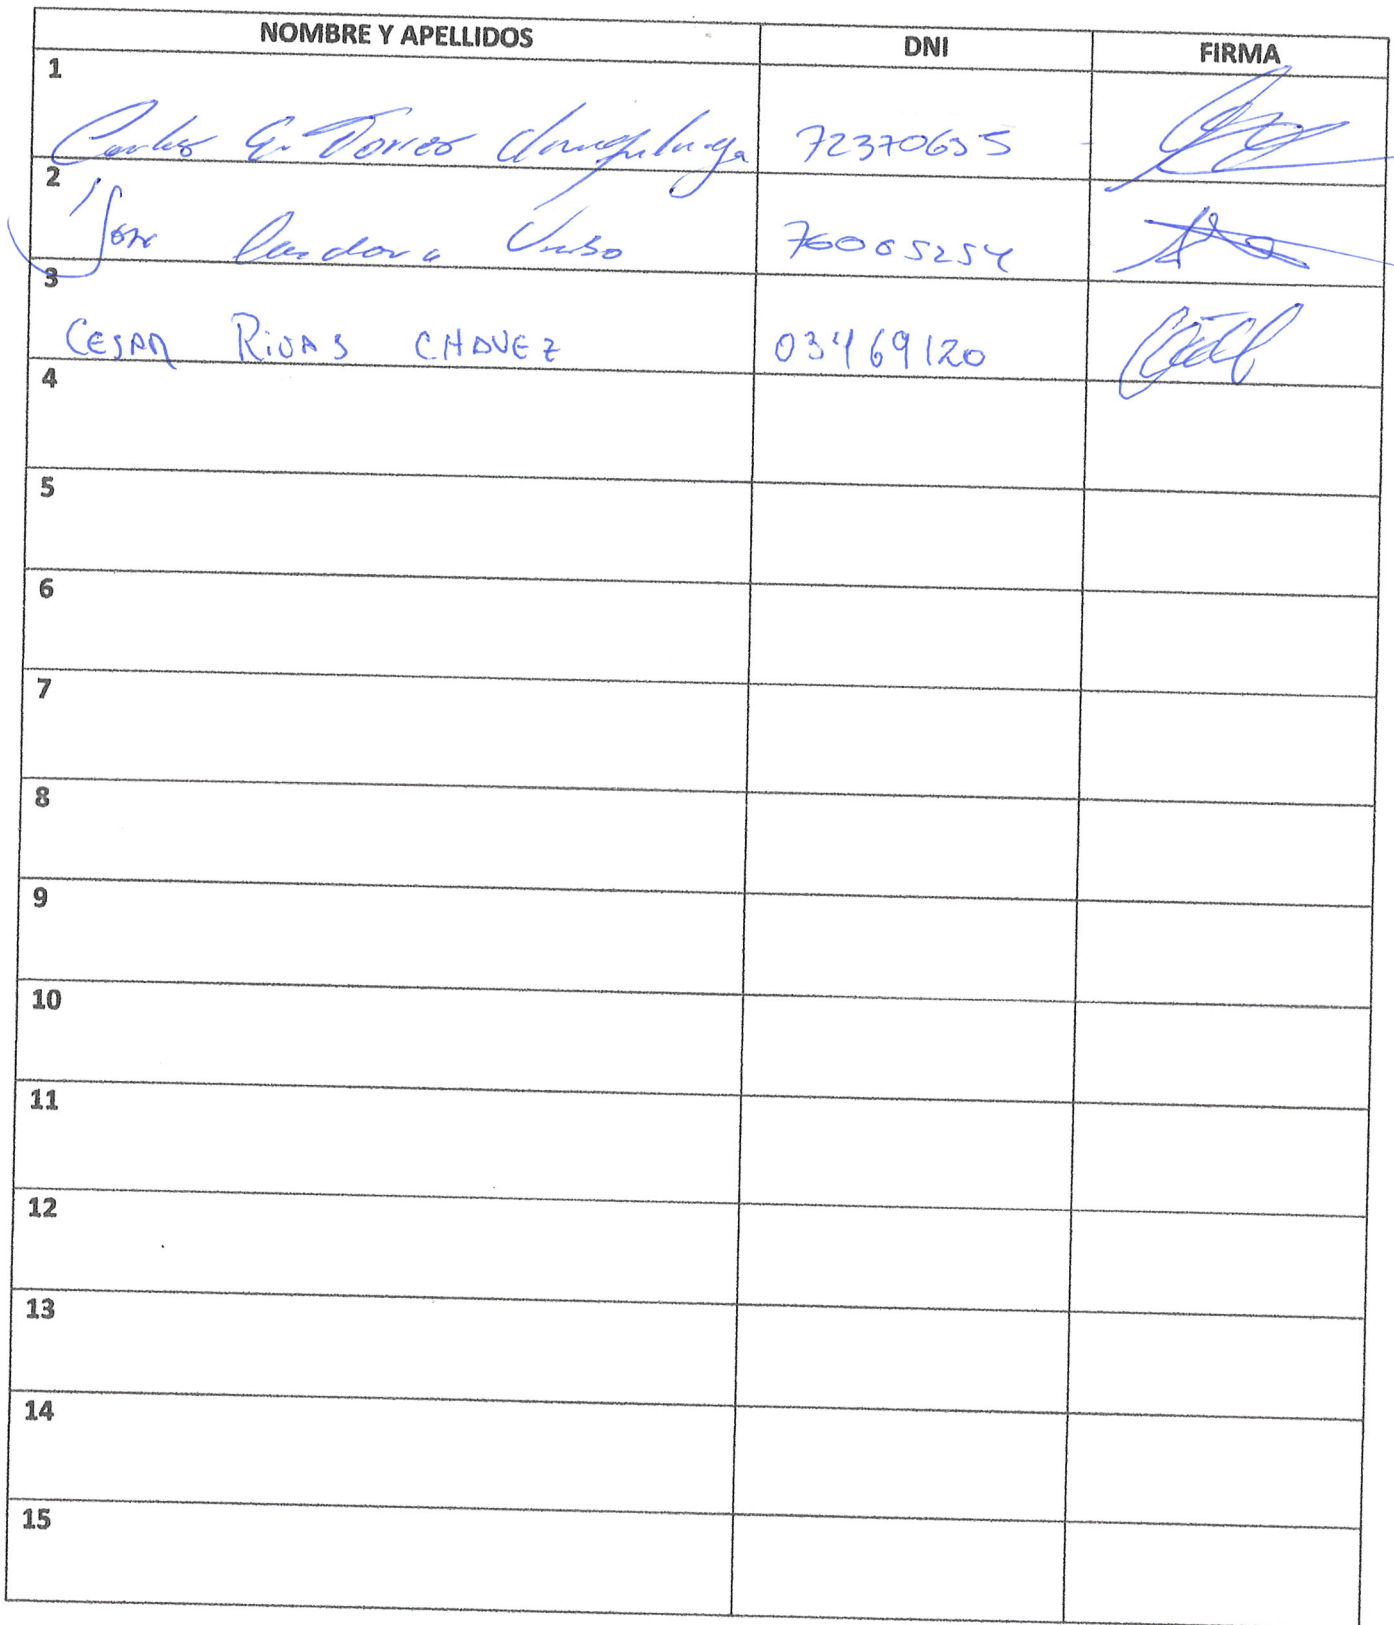 NOMBRE Y APELLIDOS DNI FIRMA
1
Carlos E. Torres 72370635
2
Jose 76005254
3
CESAR RIVAS CHAVEZ 03469120
4
5
6
7
8
9
10
11
12
13
14
15